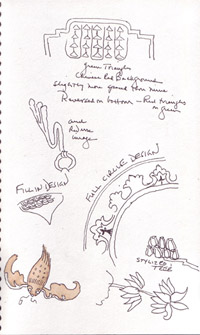 Green Triangles
Chinese Red Background
Slightly more spread than mine
Reversed on bottom - Red triangles
on green
and
Reverse
image
FILL IN DESIGN
FULL CIRCLE DESIGN
STYLIZED
TREE